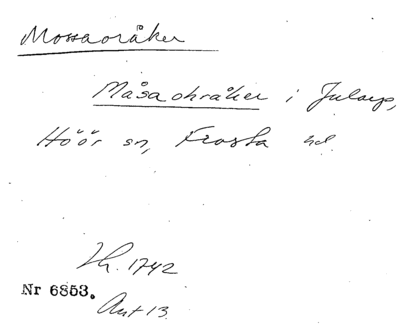 Mossaoråker
Måsaohråker i Jularp,
Höör sn, Frosta hd
Lh. 1742
Nr 6853.
Ant 13.